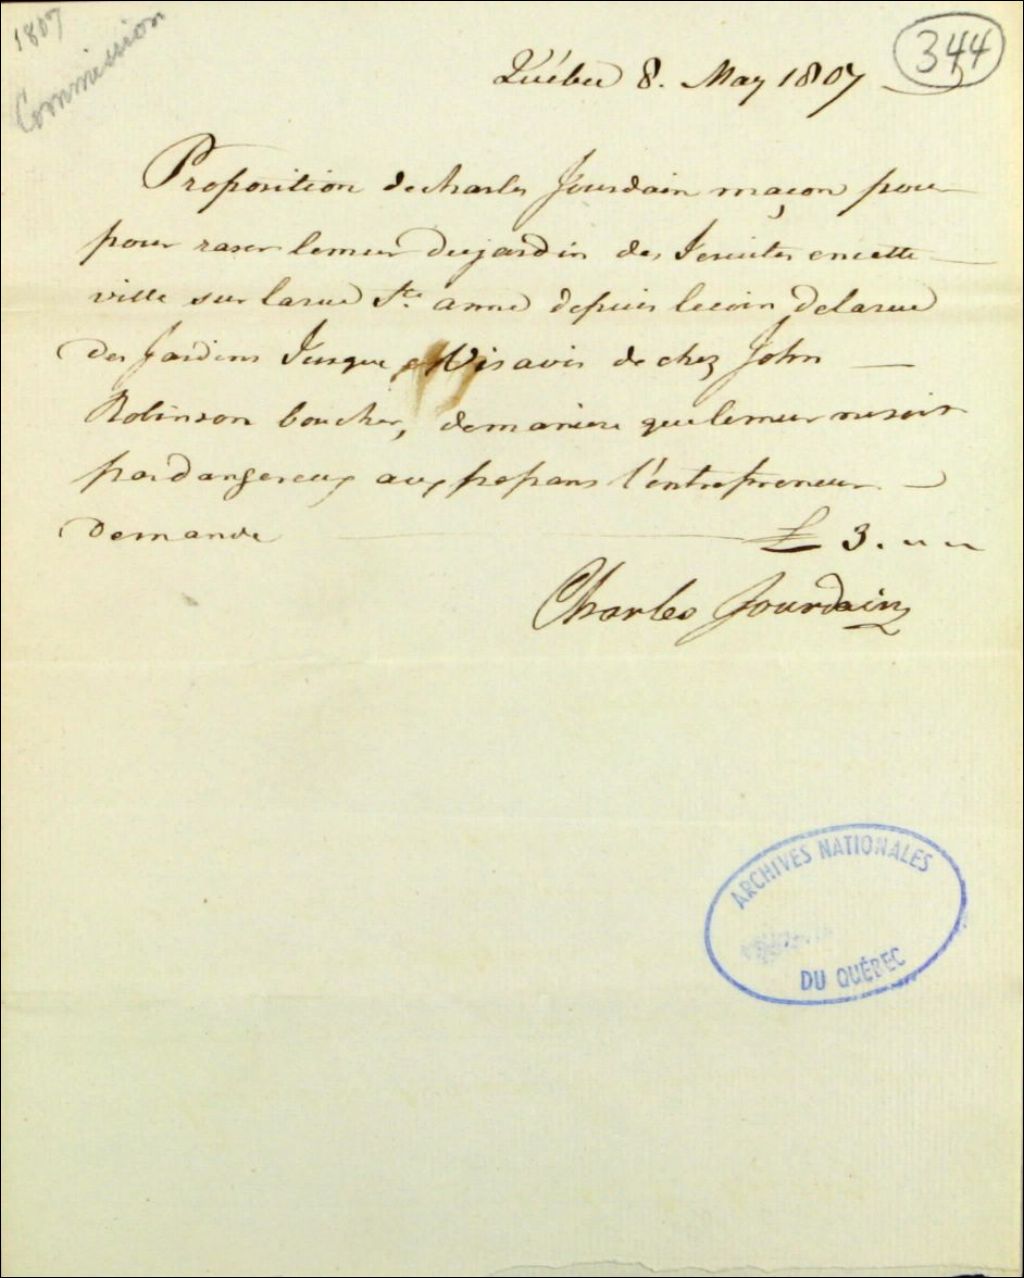 1807
Commission
344
Québec 8. May 1807
Proposition de charles Jourdain maçon pour
pour raser lemur dujardin des Jesuites encette
ville sur larue Ste. anne depuis lecoin delarue
des Jardins Jusque Visavis de chez John
Robinson boucher, demaniere quelemur nesoit
pasdangereux aux passans l'entrepreneur
demande £ 3. " "
Charles Jourdain
ARCHIVES NATIONALES
DU QUÉBEC